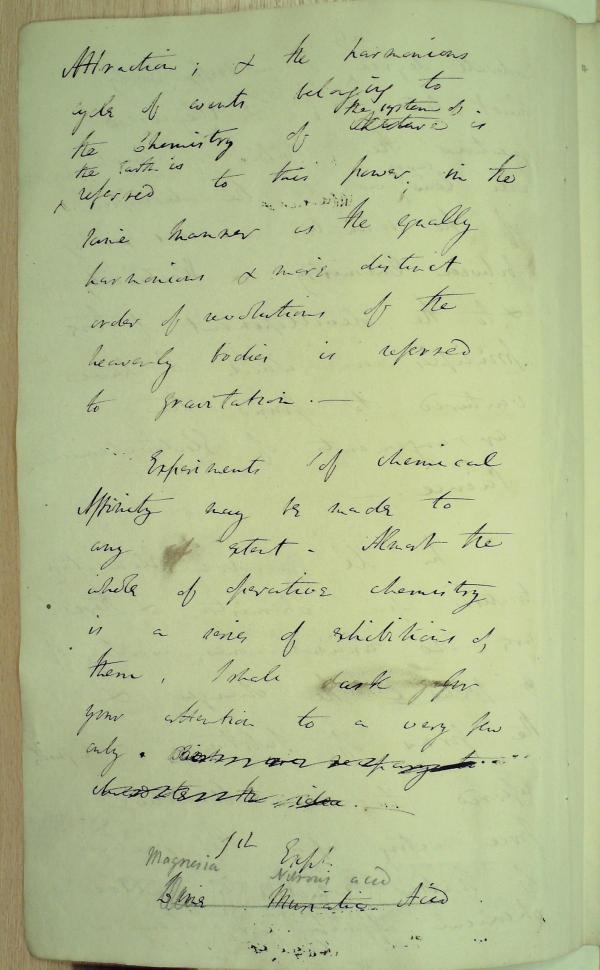 Attraction; & the harmonious
cycle of events belonging to
the system of
the Chemistry of is
the Earth is
referred to this power; in the
same manner as the equally
harmonious & more distinct
order of revolutions of the
heavenly bodies is referred
to gravitation. —
Experiments of chemical
Affinity may be made to
any extent - Almost the
whole of operative chemistry
is a series of exhibitions of
them. I shall ask for
your attention to a very few
only.
the idea. —
1st Expt.
Magnesia Nitrous acid
Muriatic Acid